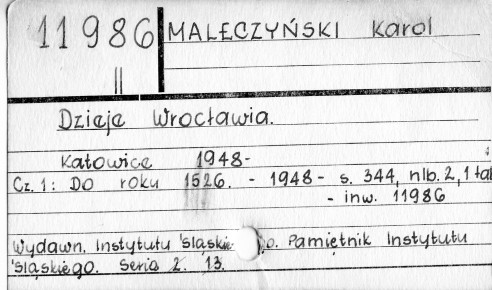 11986
II
MALECZYŃSKI Karol
Dzieje Wrocławia.
Katowice 1948-
Cz. 1: Do roku 1526. - 1948 - s. 344, nlb. 2, 1 tabl
- inw. 11986
Wydawn. Instytutu Śląskie o. Pamiętnik Instytutu
Śląskiego. Seria 2. 13.